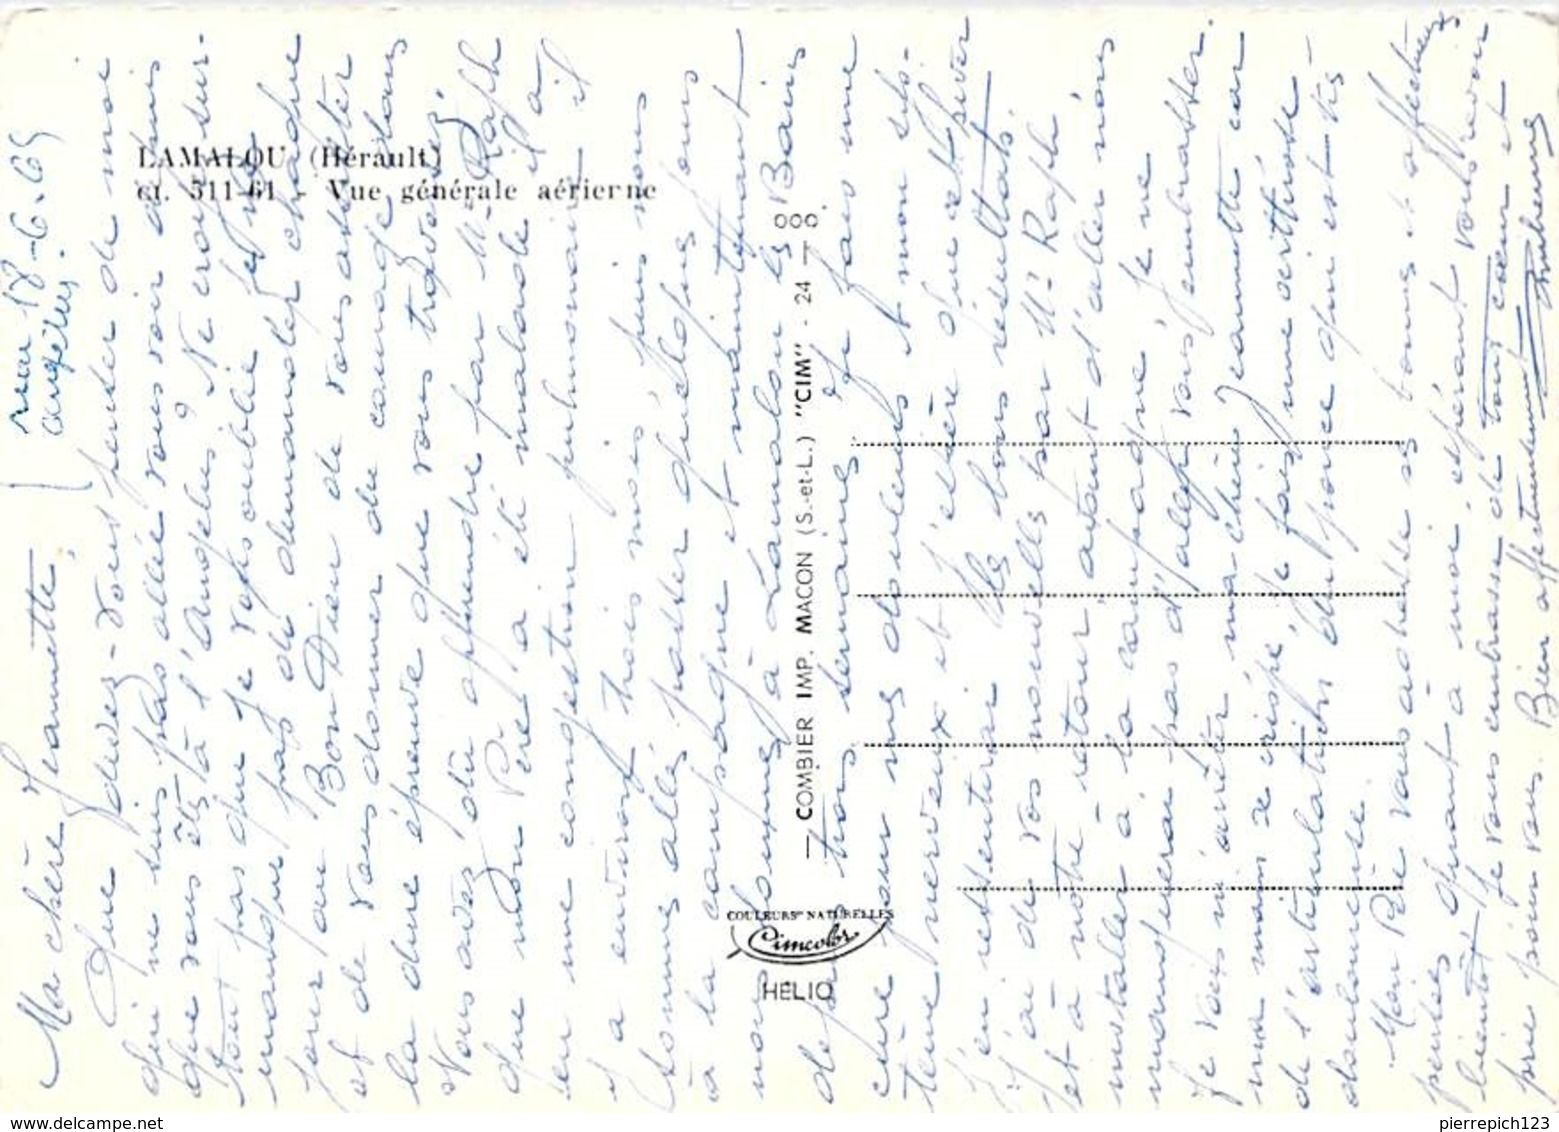 reçu 18-6-65
angélus.
Ma chère Jeannette,
Que devez-vous penser de moi
qui ne suis pas allée vous voir depuis
que vous êtes à l'Angélus, Ne croyez sur-
tout pas que je vous oublie et ne
manque pas de demander chaque
jour au Bon Dieu de vous assister
et de vous donner du courage dans
la dure épreuve que vous traversez.
Vous avez dû apprendre par Mr Raph
que mon Père a été malade il a
eu une congestion pulmonaire il
y a environ trois mois, puis nous
sommes allés passer quelques jours
à la campagne et maintenant
nous sommes à Lamalou les Bains
depuis trois semaines. Je fais une
cure pour mes douleurs et mon sys-
tème nerveux et j'espère que cet hiver
j'en ressentirai les bons résultats.
J'ai de vos nouvelles par Mr Raph
et à notre retour, avant d'aller nous
installer à la campagne, je ne
manquerai pas d'aller vous embrasser.
Je vais m'arrêter ma chère Jeannette car
ma main se crispe, je fais une arthrose
de l'articulation du pouce qui est très
douloureuse.
Mon Père vous adresse ses bonnes et affectueuses
pensées quant à moi, espérant vous revoir
bientôt je vous embrasse de tout cœur et
prie pour vous. Bien affectueusement
LAMALOU (Hérault)
ct. 511-61 - Vue générale aérienne
— COMBIER IMP. MACON (S.-et-L.) "CIM" - 24 —
COULEURS NATURELLES
Cimcolor
HELIO
delcampe.net
pierrepich123